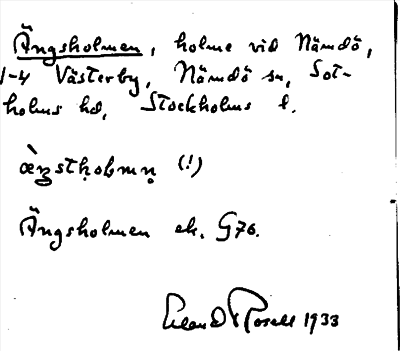 Ängsholmen, holme vid Nämdö,
1-4 Västerby, Nämdö sn, Sot-
holms hd, Stockholms l.
Ängsholmen ek. G76.
Erland Rosell 1933